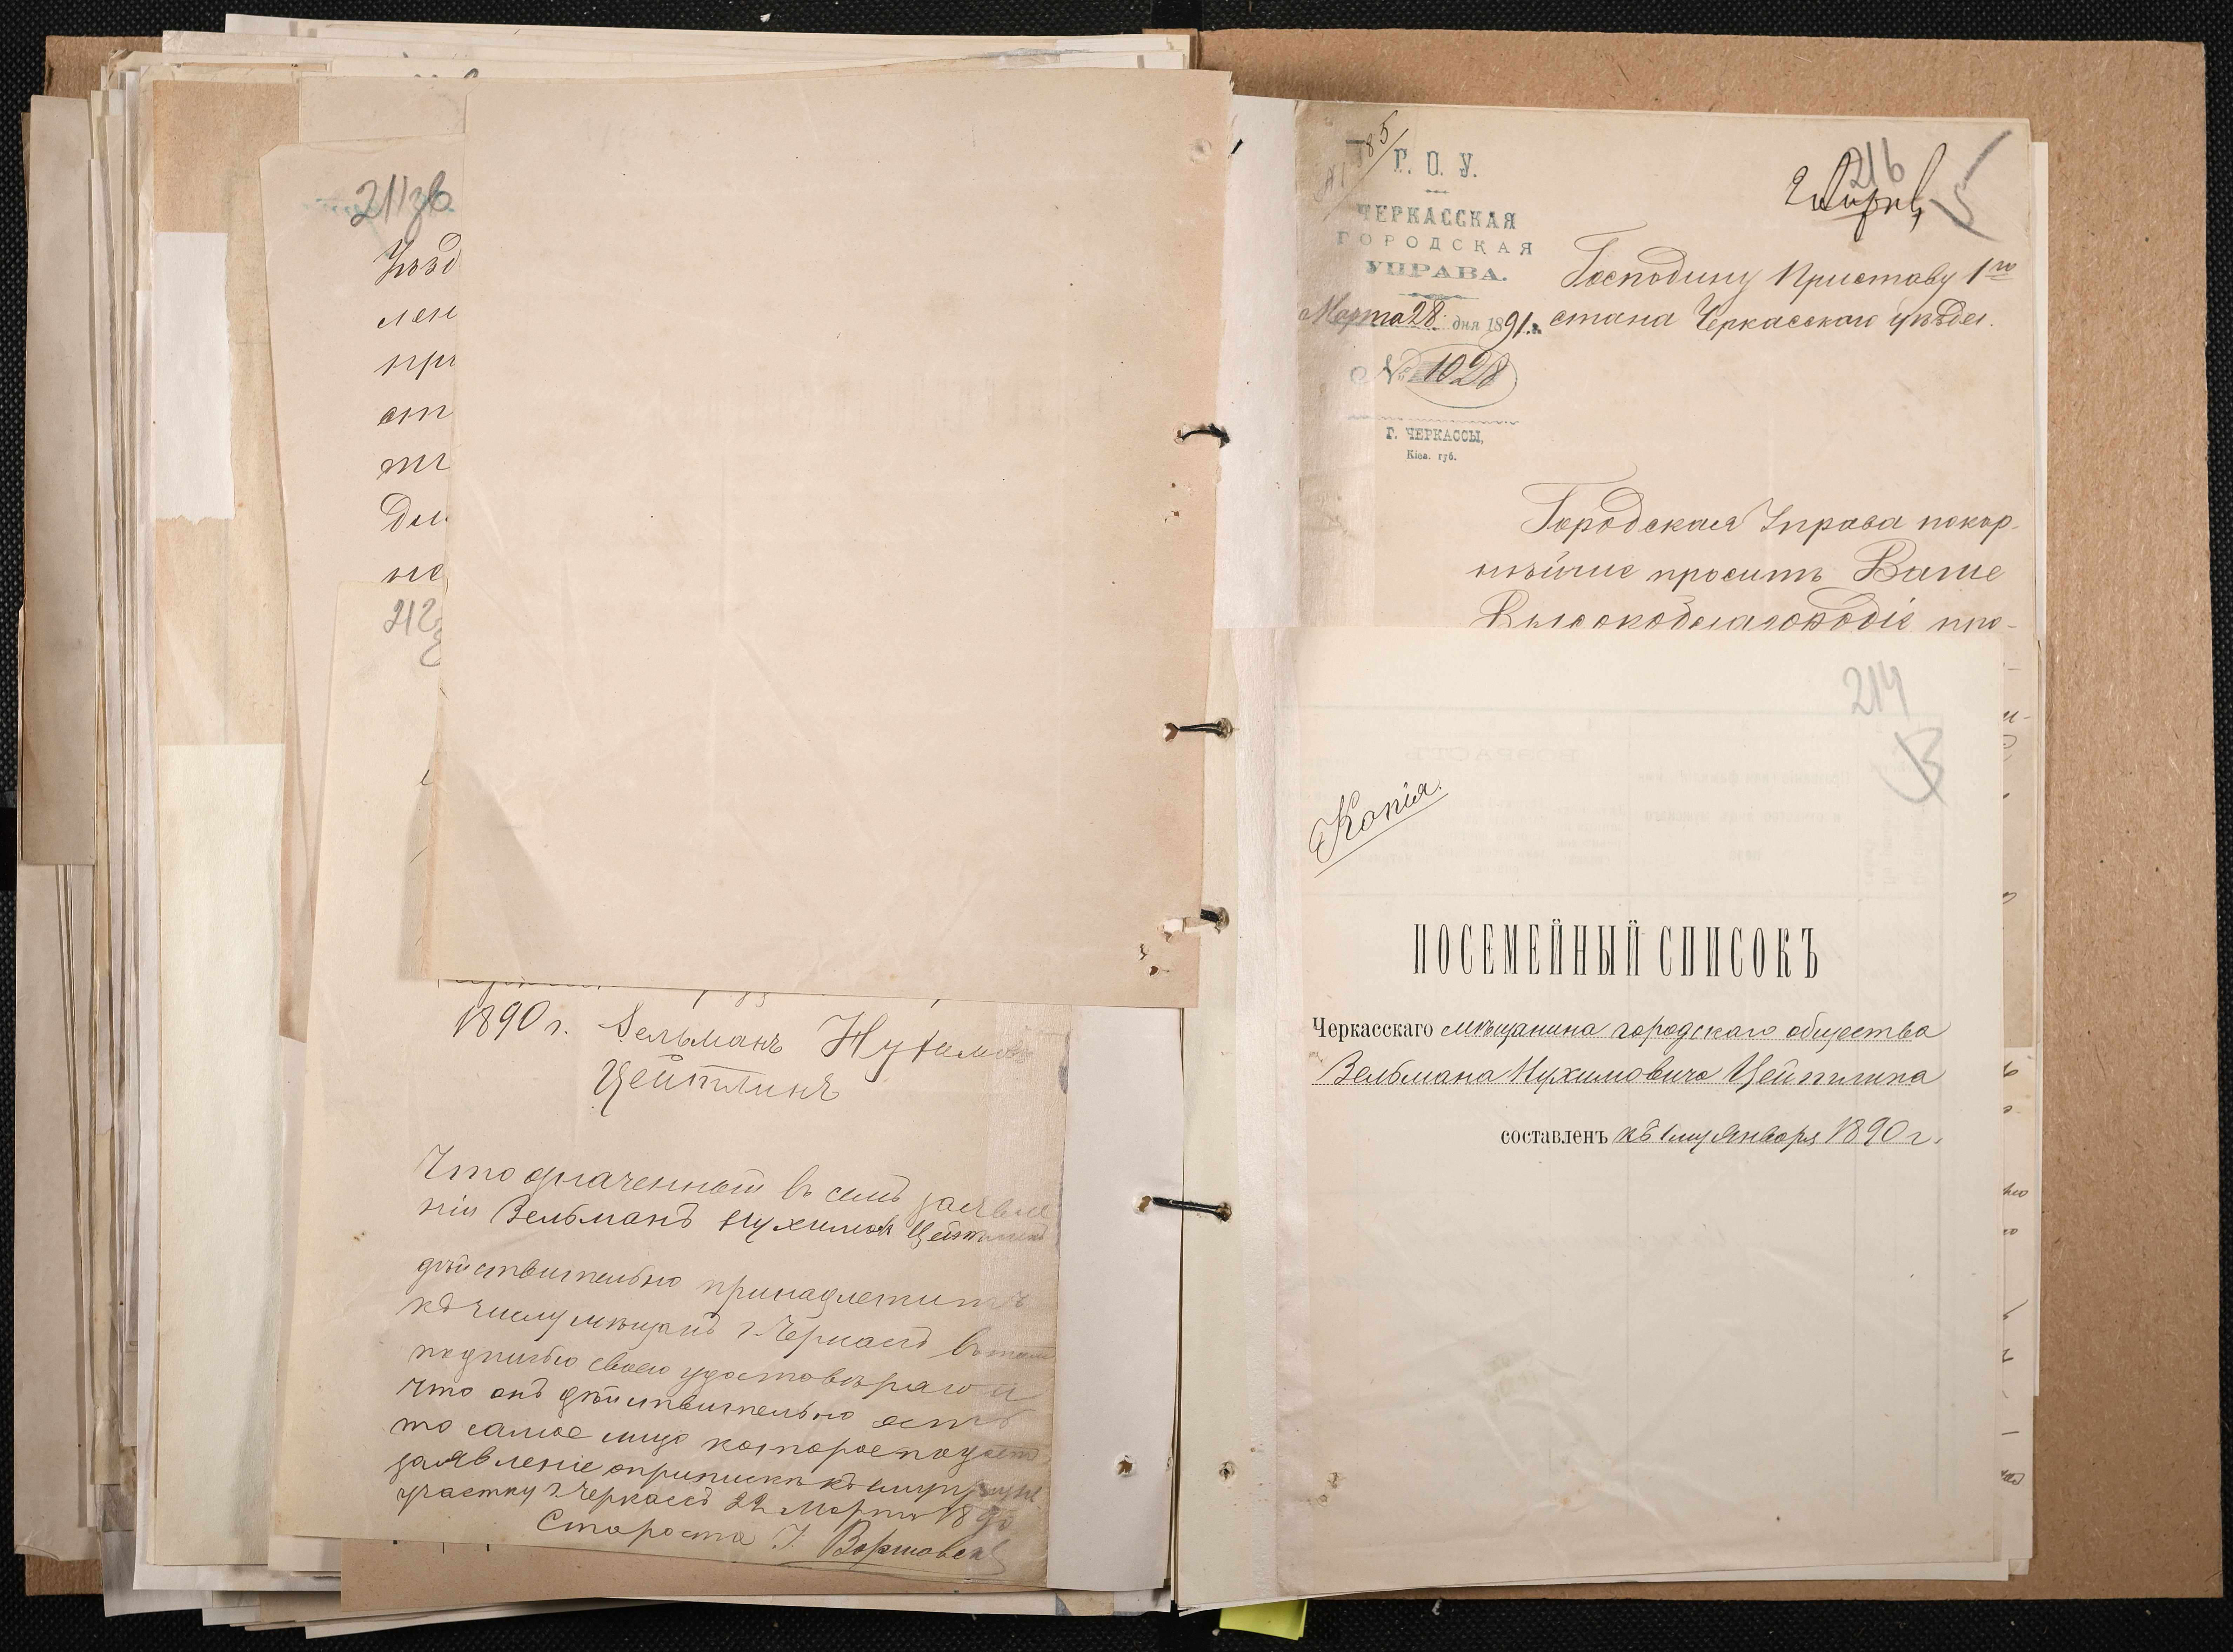 211зв.
Уѣзд
лен
при
ст
дал
не
212
1890 г. Зельманъ Нухимовъ
Цейтлинъ
Что означенный въ семъ заявле
ніи Зельманъ Нухимовъ Цейтлинъ
дѣйствительно принадлежитъ
къ числу мѣщанъ г. Черкасъ въ томъ
подписью своею удостовѣряю и
что онъ дѣйствительно есть
то самое лицо которое подаетъ
заявленіе о припискѣ къ
участку г. Черкассъ 22 Марта 1890
Староста І. Варшавск
216
Г. О. У.
ЧЕРКАССКАЯ
ГОРОДСКАЯ
УПРАВА.
Марта 28 дня 1891 г.
№ 1028
Г. ЧЕРКАССЫ,
Кіев. губ.
Господину Приставу 1го
стана Черкасскаго уѣзда.
Городская Управа покор-
нѣйше проситъ Ваше
Высокоблагородіе про-
214
Копія.
ПОСЕМЕЙНЫЙ СПИСОКЪ
Черкасскаго мѣщанина городскаго общества
Зельмана Нухимовича Цейтлина
составленъ къ 1му Января 1890 г.